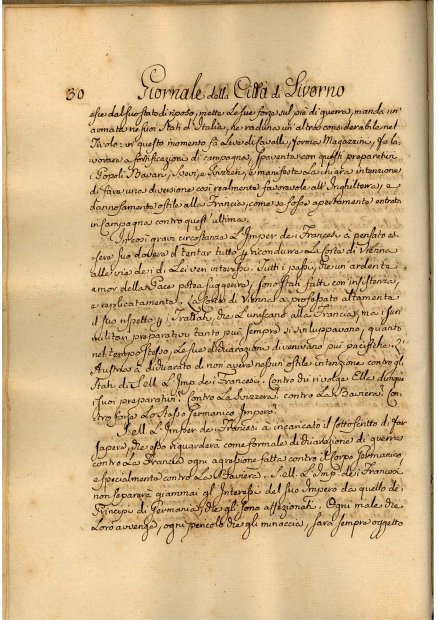 30 Giornale della Città di Livorno
esce dal suo stato di riposo, mette le sue forze sul piè di guerra, manda un'
armata ne' suoi Stati d'Italia, ne raduna un'altra considerabile nel
Tirolo: in questo momento fà leve di Cavalli, forma Magazzini, fa la-
vorare a fortificazioni di campagna, spaventa con questi preparativi
i Popoli Bavari, Svizzeri, e manifesta la chiara intenzione
di fare una diversione così realmente favorevole all'Inghilterra, e
dannosamente ostile alla Francia, come se fosse apertamente entrata
in Campagna contro quest'ultima.
In così gravi circostanze L'Imper. de' Francesi à pensato es-
sere suo dovere di tentar tutto p. ricondurre la Corte di Vienna
alle vie de' di Lei veri interessi. Tutti i passi, che un ardente
amor della Pace potea suggerire, sono stati fatti con insistenza,
e replicatamente. La Corte di Vienna à professato altamente
il suo rispetto p. i Trattati, che L'uniscano alla Francia, ma i suoi
militari preparativi tanto più sempre si sviluppavano, quanto
nel tempo stesso, le sue dichiarazioni divenivano più pacifiche. L'
Austria à dichiarato di non avere nessun'ostile intenzione contro gli
Stati di S. M. L'Imp. de' Francesi. Contro chi rivolge Ella dunque
i suoi preparativi? Contro la Svizzera? contro la Baviera? Con-
tro forse Lo Stesso Germanico Impero?
S. M. L'Imper. de' Francesi à incaricato il sottoscritto di far
sapere, che esso riguarderà come formale dichiarazione di guerra
contro la Francia ogni agressione fatta contro il Corpo Germanico,
e specialmente contro la Baviera. S. M. L'Imp. de' Francesi
non separerà giammai gl'Interessi del suo Impero da quello de'
Principi di Germania, che gli sono affezionati. Ogni male che
Loro avvenga, ogni pericolo che gli minaccia, sarà sempre oggetto